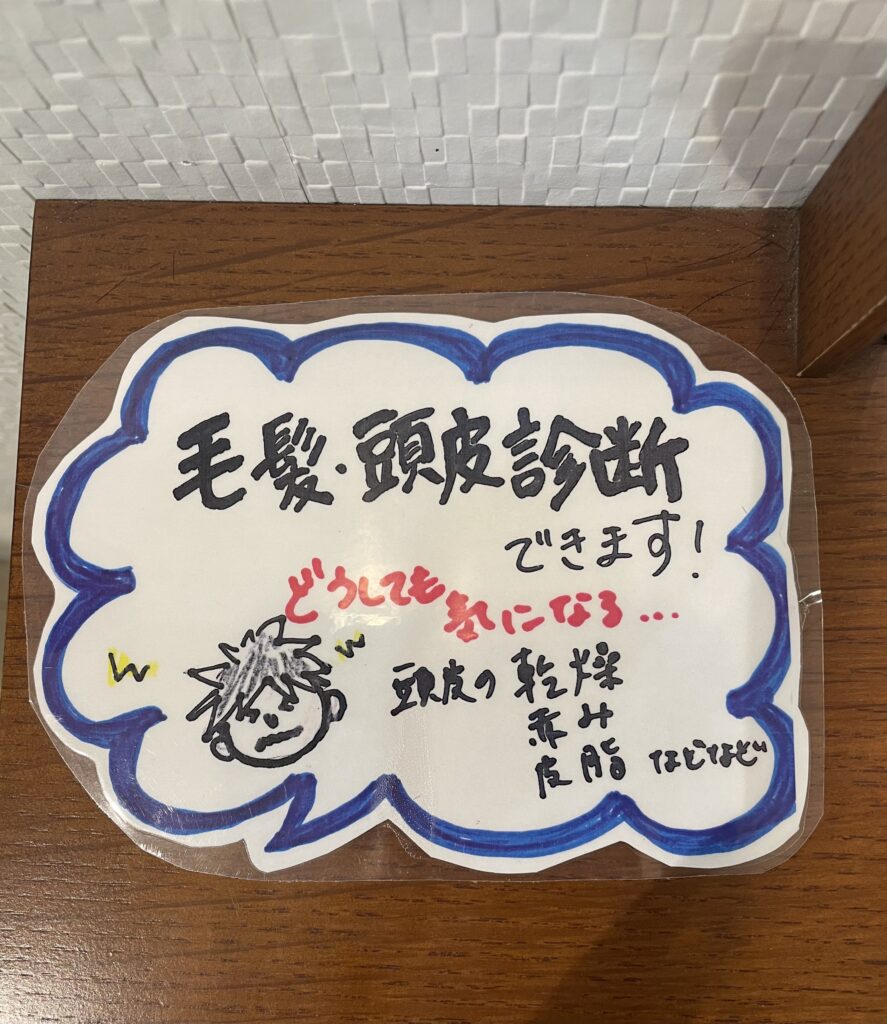 毛髪・頭皮診断
できます!
どうしても
気になる...
頭皮の乾燥
赤み
皮脂 などなど